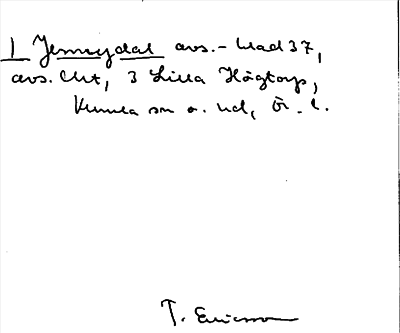 1 Jennydal avs.- bad 37,
avs. Cht, 3 Lilla Högtorp,
Kumla sn o. hd, Ör. l.
T. Ericsson